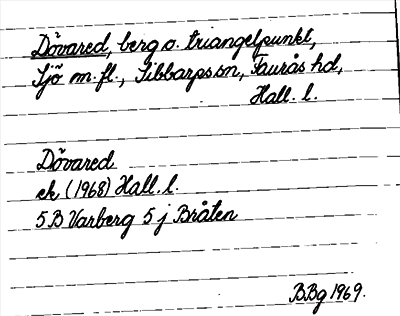 Dövared, berg o. triangelpunkt,
Sjö m.fl., Sibbarps sn, Faurås hd,
Hall. l.
Dövared
ek (1968) Hall. l.
5B Varberg 5 j Bråten
BBg 1969.